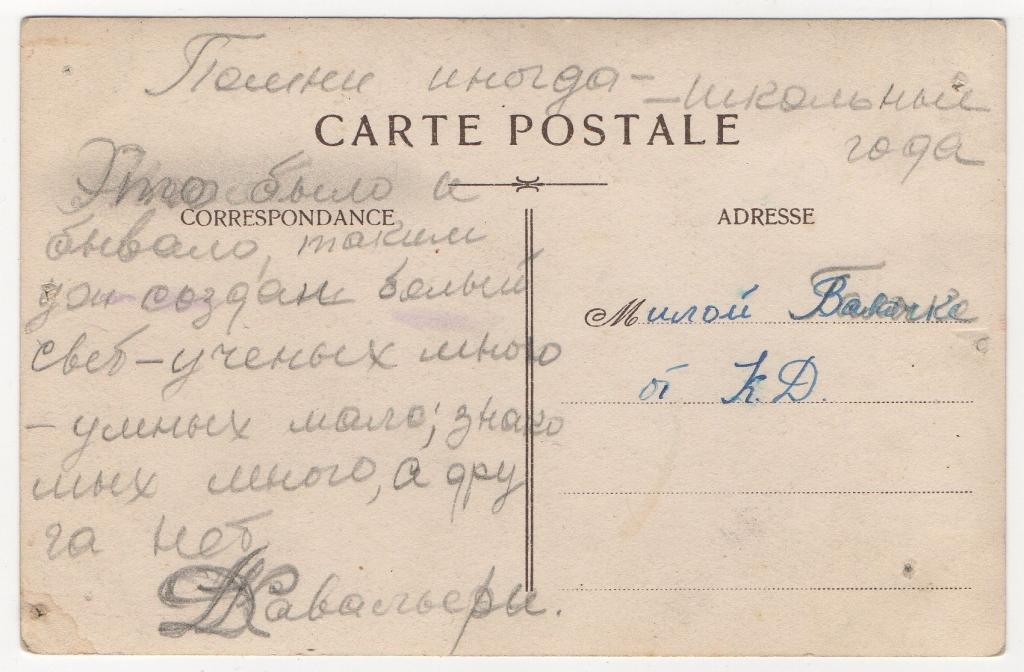 Помни иногда –
– школьный
года
CARTE POSTALE
Это было и
CORRESPONDANCE
ADRESSE
бывало, таким
уж создан белый
свет – ученых много
– умных мало; знако
мых много, а дру
га нет
Кавальери.
Милой
от К. Д.